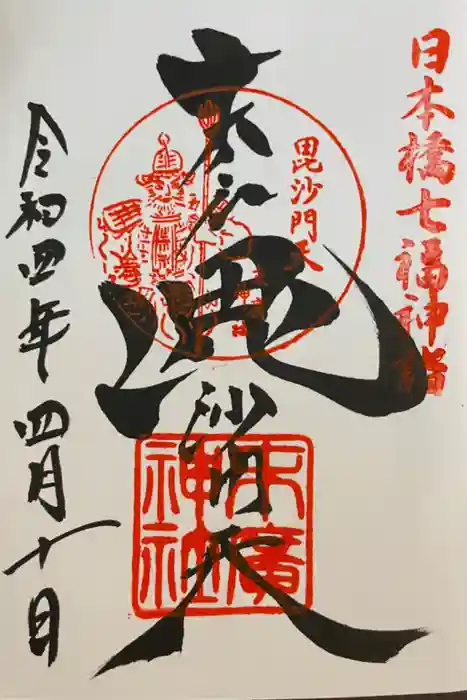 日本橋七福神詣
毘沙門天
末廣
毘沙門天
末廣神社
令和四年四月十日